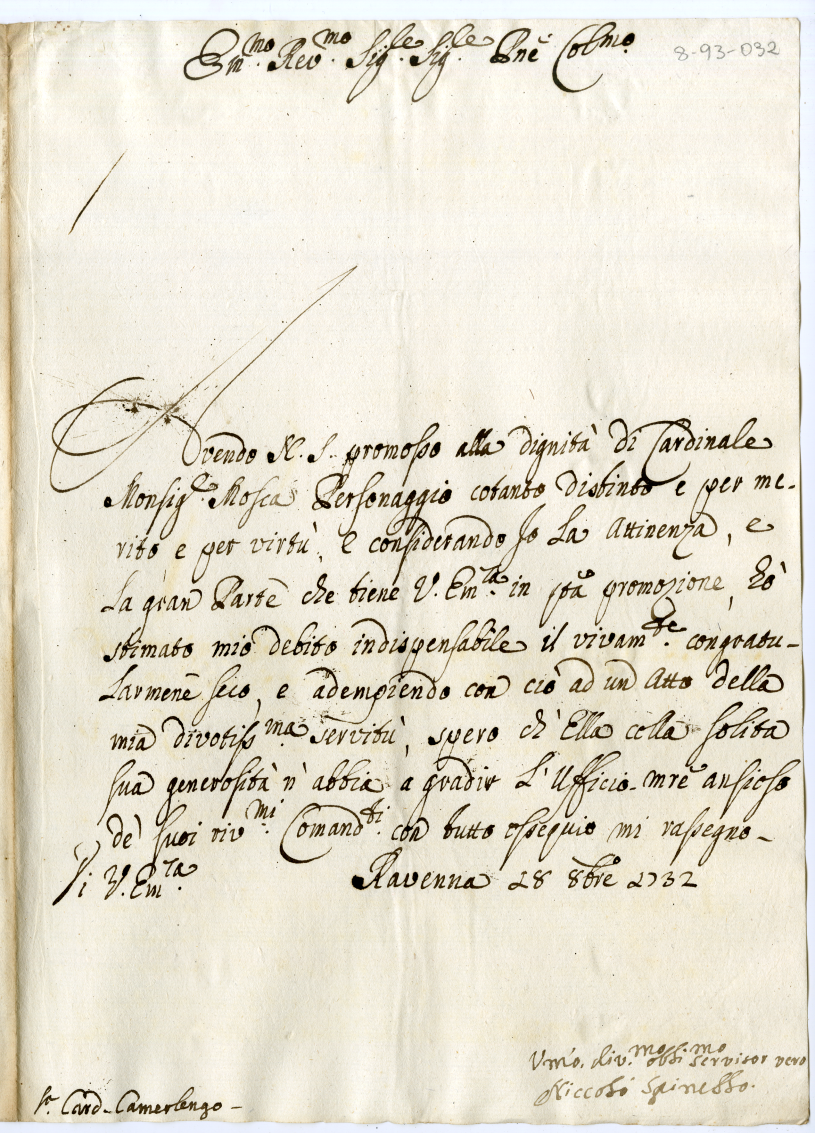 Em.mo Rev.mo Sig.le Sig.le Pne Col.mo
8-93-032
Avendo N. S. promosso alla dignità di Cardinale
Monsig.r Mosca Personaggio cotanto distinto e per me-
rito e per virtù, e considerando Jo La Attinenza, e
La gran Parte che tiene V. Em.za in sta promozione, hò
stimato mio debito indispensabile il vivam.te congratu-
Larmene seco, e adempiendo con ciò ad un Atto della
mia divotiss.ma servitù, spero ch' Ella colla solita
sua generosità n' abbia à gradir L' Ufficio. mre ansioso
de' suoi riv.mi Comand.ti con tutto ossequio mi rassegno-
Di V. Em.za Ravenna 28 8bre 1732
Umo. div.mo obb.mo servitor vero
Niccolò
Sr. Card. Camerlengo -